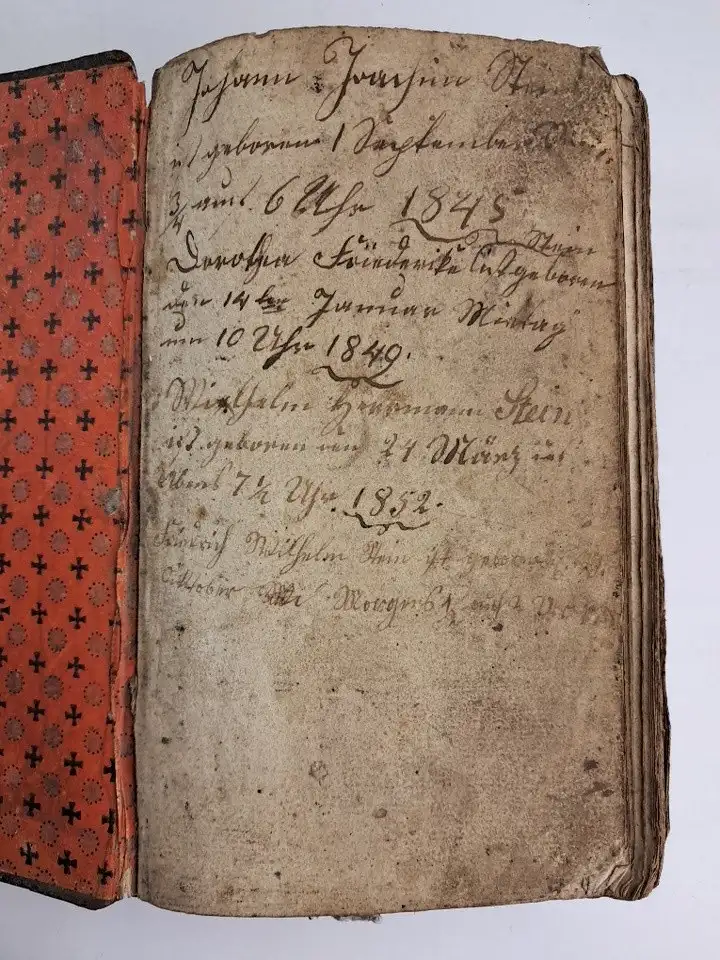 Johann Joachim
ist geboren 1 September
3/4 auf 6 Uhr 1845
Stein
Dorothea Friederike ist geboren
den 14 ten Januar Mittag
um 10 Uhr 1849.
Wielhelm Herrmann Stein
ist geboren den 24 März
Abens 7 1/2 Uhr 1852.
Friedrich Wilhelm Stein ist geboren
Oktober Morgens